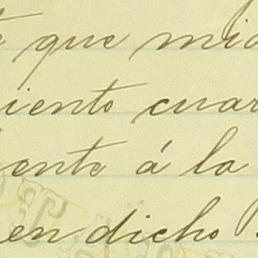 que mid
iento cuar
ente á la
en dicho